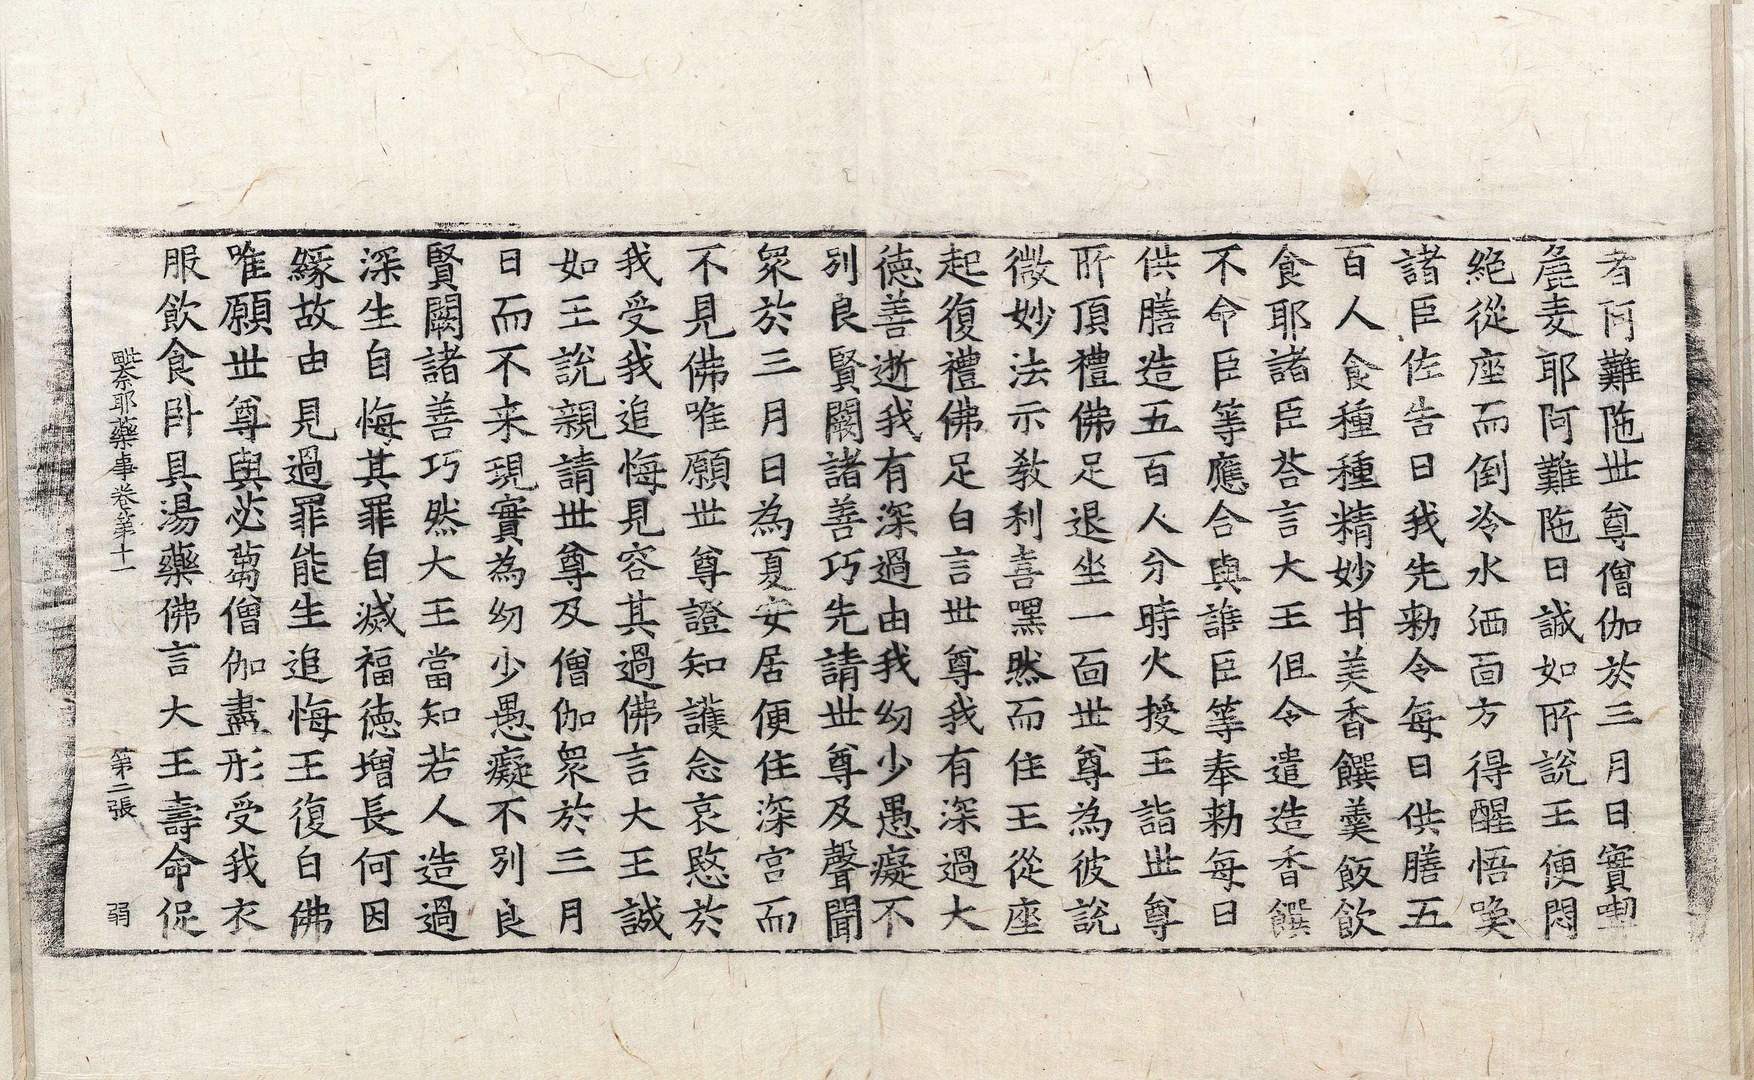 者阿難陁世尊僧伽於三月日實喫
麁麦耶阿難陁曰誠如所說王便悶
絕從座而倒冷水洒面方得醒悟喚
諸臣佐告曰我先勑令每日供膳五
百人食種種精妙甘美香饌羹飯飲
食耶諸臣荅言大王但令遣造香饌
不命臣等應合與誰臣等奉勑每日
供膳造五百人分時火授王詣世尊
所頂禮佛足退坐一面世尊為彼說
微妙法示教利喜嘿然而住王從座
起復禮佛足白言世尊我有深過大
德善逝我有深過由我幼少愚癡不
別良賢闕諸善巧先請世尊及聲聞
衆於三月日為夏安居便住深宮而
不見佛唯願世尊證知護念哀愍於
我受我追悔見容其過佛言大王誠
如王說親請世尊及僧伽衆於三月
日而不来現實為幼少愚癡不別良
賢闕諸善巧然大王當知若人造過
深生自悔其罪自滅福德增長何因
緣故由見過罪能生追悔王復白佛
唯願世尊與苾蒭僧伽盡形受我衣
服飲食卧具湯藥佛言大王壽命促
毗奈耶藥事卷第十一 第二張 弱